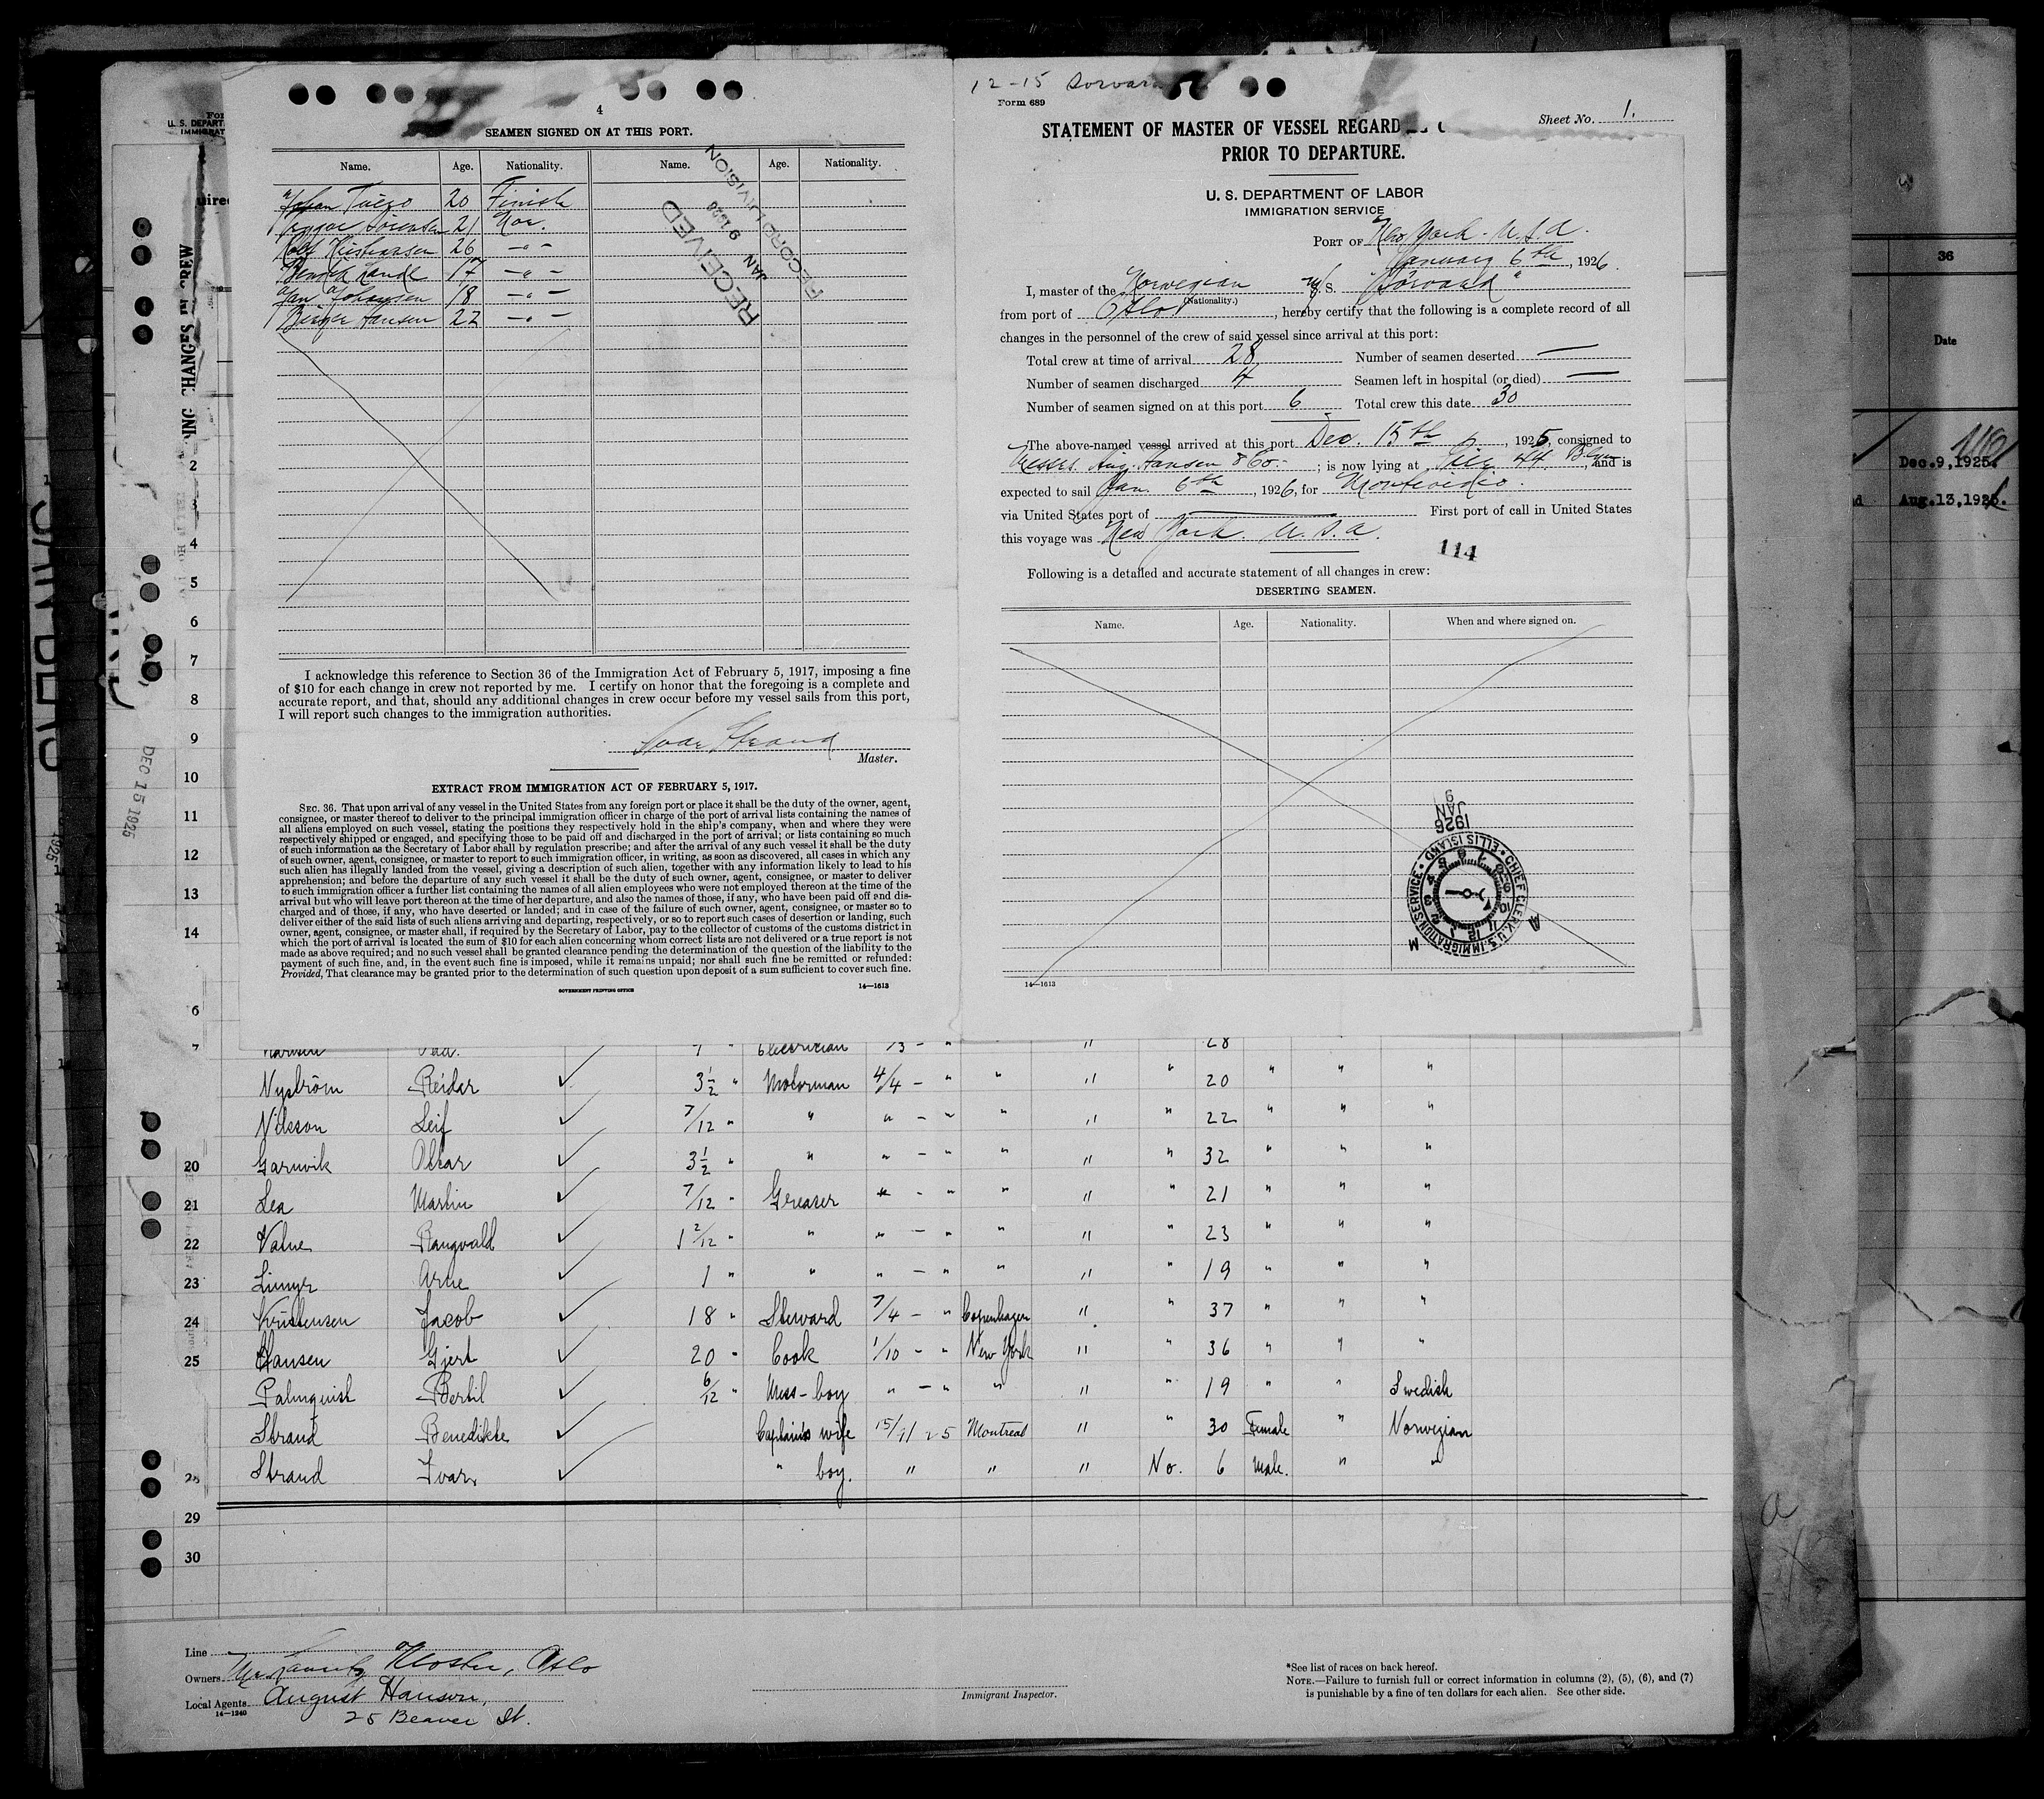 4
SEAMEN SIGNED ON AT THIS PORT.
Name. Age. Nationality. Name. Age. Nationality.
20 Finish
Sörensen 21 Nor.
Rolf Kristiansen 26 -"-
Henrik Lande 17 -"-
Jan Johansen 18 -"-
Birger Hansen 22 -"-
RECEIVED
JAN 9 1926
RECORD DIVISION
I acknowledge this reference to Section 36 of the Immigration Act of February 5, 1917, imposing a fine
of $10 for each change in crew not reported by me. I certify on honor that the foregoing is a complete and
accurate report, and that, should any additional changes in crew occur before my vessel sails from this port,
I will report such changes to the immigration authorities.
Ivar Strand
Master.
EXTRACT FROM IMMIGRATION ACT OF FEBRUARY 5, 1917.
SEC. 36. That upon arrival of any vessel in the United States from any foreign port or place it shall be the duty of the owner, agent,
consignee, or master thereof to deliver to the principal immigration officer in charge of the port of arrival lists containing the names of
all aliens employed on such vessel, stating the positions they respectively hold in the ship's company, when and where they were
respectively shipped or engaged, and specifying those to be paid off and discharged in the port of arrival; or lists containing so much
of such information as the Secretary of Labor shall by regulation prescribe; and after the arrival of any such vessel it shall be the duty
of such owner, agent, consignee, or master to report to such immigration officer, in writing, as soon as discovered, all cases in which any
such alien has illegally landed from the vessel, giving a description of such alien, together with any information likely to lead to his
apprehension; and before the departure of any such vessel it shall be the duty of such owner, agent, consignee, or master to deliver
to such immigration officer a further list containing the names of all alien employees who were not employed thereon at the time of the
arrival but who will leave port thereon at the time of her departure, and also the names of those, if any, who have been paid off and dis-
charged and of those, if any, who have deserted or landed; and in case of the failure of such owner, agent, consignee, or master so to
deliver either of the said lists of such aliens arriving and departing, respectively, or so to report such cases of desertion or landing, such
owner, agent, consignee, or master shall, if required by the Secretary of Labor, pay to the collector of customs of the customs district in
which the port of arrival is located the sum of $10 for each alien concerning whom correct lists are not delivered or a true report is not
made as above required; and no such vessel shall be granted clearance pending the determination of the question of the liability to the
payment of such fine, and, in the event such fine is imposed, while it remains unpaid; nor shall such fine be remitted or refunded:
Provided, That clearance may be granted prior to the determination of such question upon deposit of a sum sufficient to cover such fine.
GOVERNMENT PRINTING OFFICE 14—1613
12-15
Form 689
Sheet No. 1.
STATEMENT OF MASTER OF VESSEL
PRIOR TO DEPARTURE.
U. S. DEPARTMENT OF LABOR
IMMIGRATION SERVICE
PORT OF New York. U.S.A.
January 6th, 1926.
I, master of the Norwegian M/S. "Borvard"
(Nationality.)
from port of Oslo, hereby certify that the following is a complete record of all
changes in the personnel of the crew of said vessel since arrival at this port:
Total crew at time of arrival 28 Number of seamen deserted —
Number of seamen discharged 4 Seamen left in hospital (or died) —
Number of seamen signed on at this port 6 Total crew this date 30
The above-named vessel arrived at this port Dec. 15th, 1925, consigned to
Messrs. Aug. Hansen & Co.; is now lying at Pier 44 Bklyn, and is
expected to sail Jan 6th, 1926, for Montevideo.
via United States port of — First port of call in United States
this voyage was New York. U.S.A.
114
Following is a detailed and accurate statement of all changes in crew:
DESERTING SEAMEN.
Name. Age. Nationality. When and where signed on.
1926 JAN 9
CHIEF CLERK, U.S. IMMIGRATION SERVICE • ELLIS ISLAND •
A M
14—1613
36
Date
Dec.9,1925.
Aug.13,192
DEC 15 1925
2
3
4
5
6
7
8
9
10
11
12
13
14
6
7 Electrician 13 - " " 28
Nyström Reidar 3½ " Motorman 4/4 - " " " " 20 " " "
Nilsson Leif 7/12 " " " - " " " " 22 " " "
20 Garnvik Oskar 3½ " " " - " " " " 32 " " "
21 Lea Martin 7/12 " Greaser " - " " " " 21 " " "
22 Valne Rangvald 1 2/12 " " " - " " " " 23 " " "
23 Arne 1 " " " - " " " " 19 " " "
24 Kristensen Jacob 18 " Steward 7/4 - " Copenhagen " " 37 " " "
25 Hansen Gjert 20 " Cook 1/10 - " New York " " 36 " "
Palmquist Bertil 6/12 " Mess-boy " - " " " " 19 " " Swedish
Strand Benedikte Captain's wife 15/11 25 Montreal " " 30 Female " Norwegian
28 Strand Ivar " boy. " " " No. 6 Male. " "
29
30
Line
Owners Kloster, Oslo
Local Agents August Hanson,
14—1240
25 Beaver St.
Immigrant Inspector.
*See list of races on back hereof.
NOTE.—Failure to furnish full or correct information in columns (2), (5), (6), and (7)
is punishable by a fine of ten dollars for each alien. See other side.